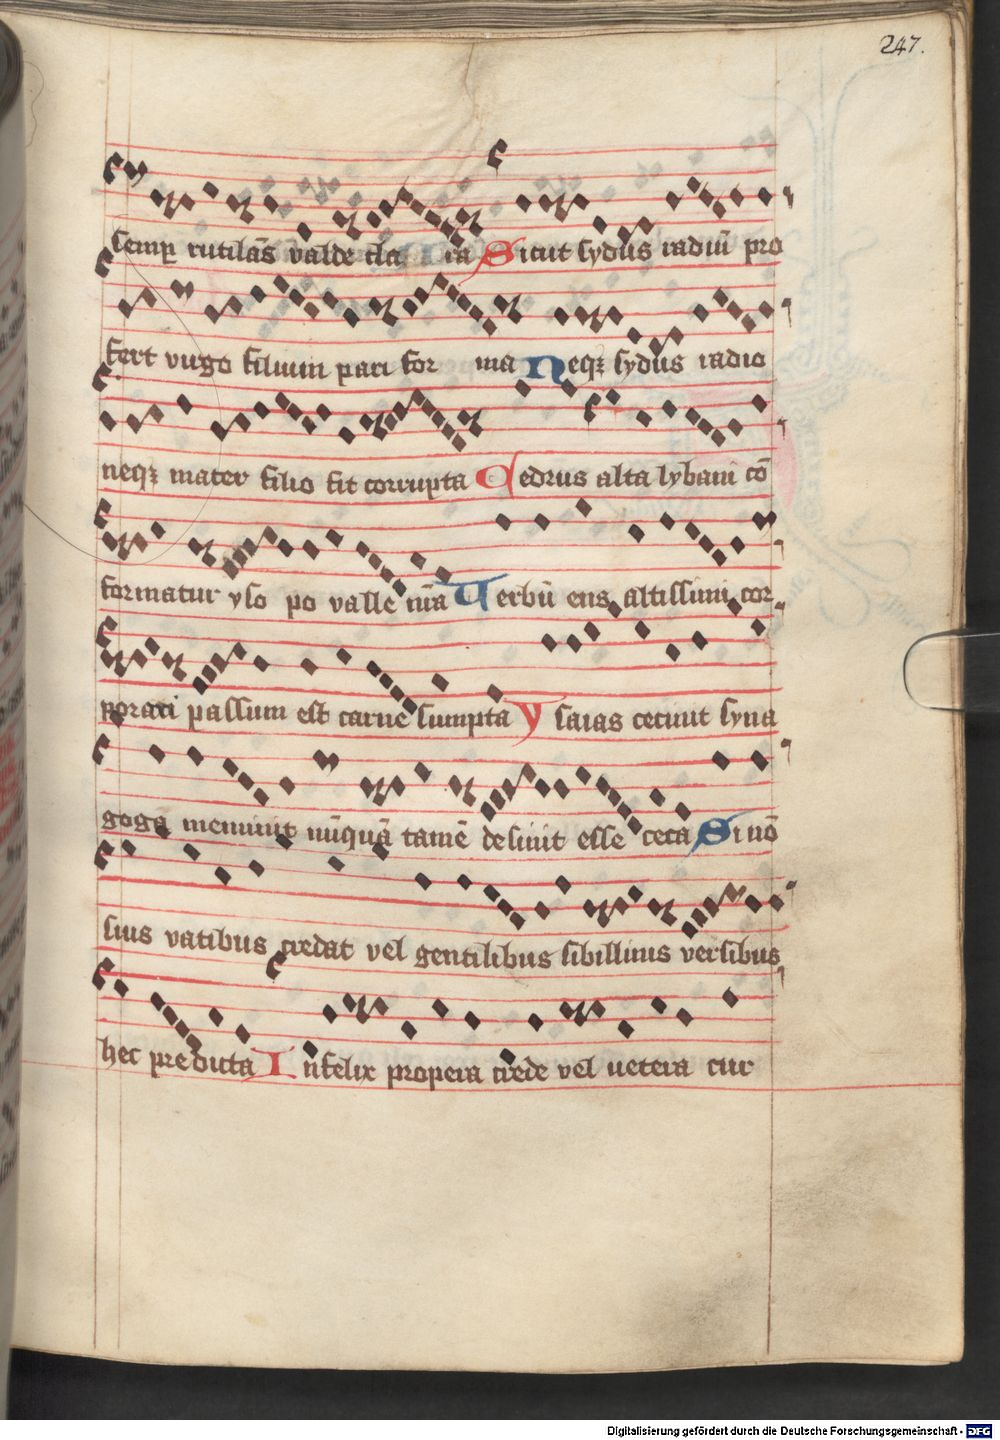 247.
semp rutilās valde cla ra Sicut sydus radiū pro
fert virgo filium pari for ma Neqz sydus radio
neqz mater filio fit corrupta Cedrus alta lybani cō
formatur yso po valle nīa Verbū ens altissimi cor
porari passum est carne sumpta Ysaias cecinit syna
goga meminit nūquā tamē desinit esse ceca Si nō
suis vatibus credat vel gentilibus sibillinis versibus
hec predicta Infelix propera crede vel uetera cur
Digitalisierung gefördert durch die Deutsche Forschungsgemeinschaft - DFG